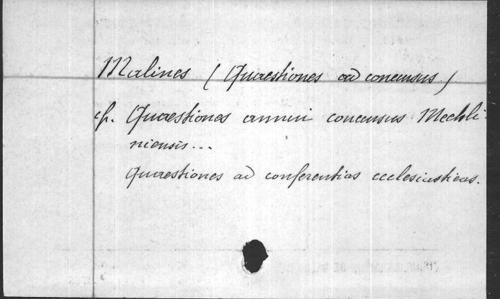 Malines (Quaestiones ad concursus)
cfr. Quaestiones annui concursus Mechli-
niensis...
Quaestiones ad conferentias ecclesiasticas.